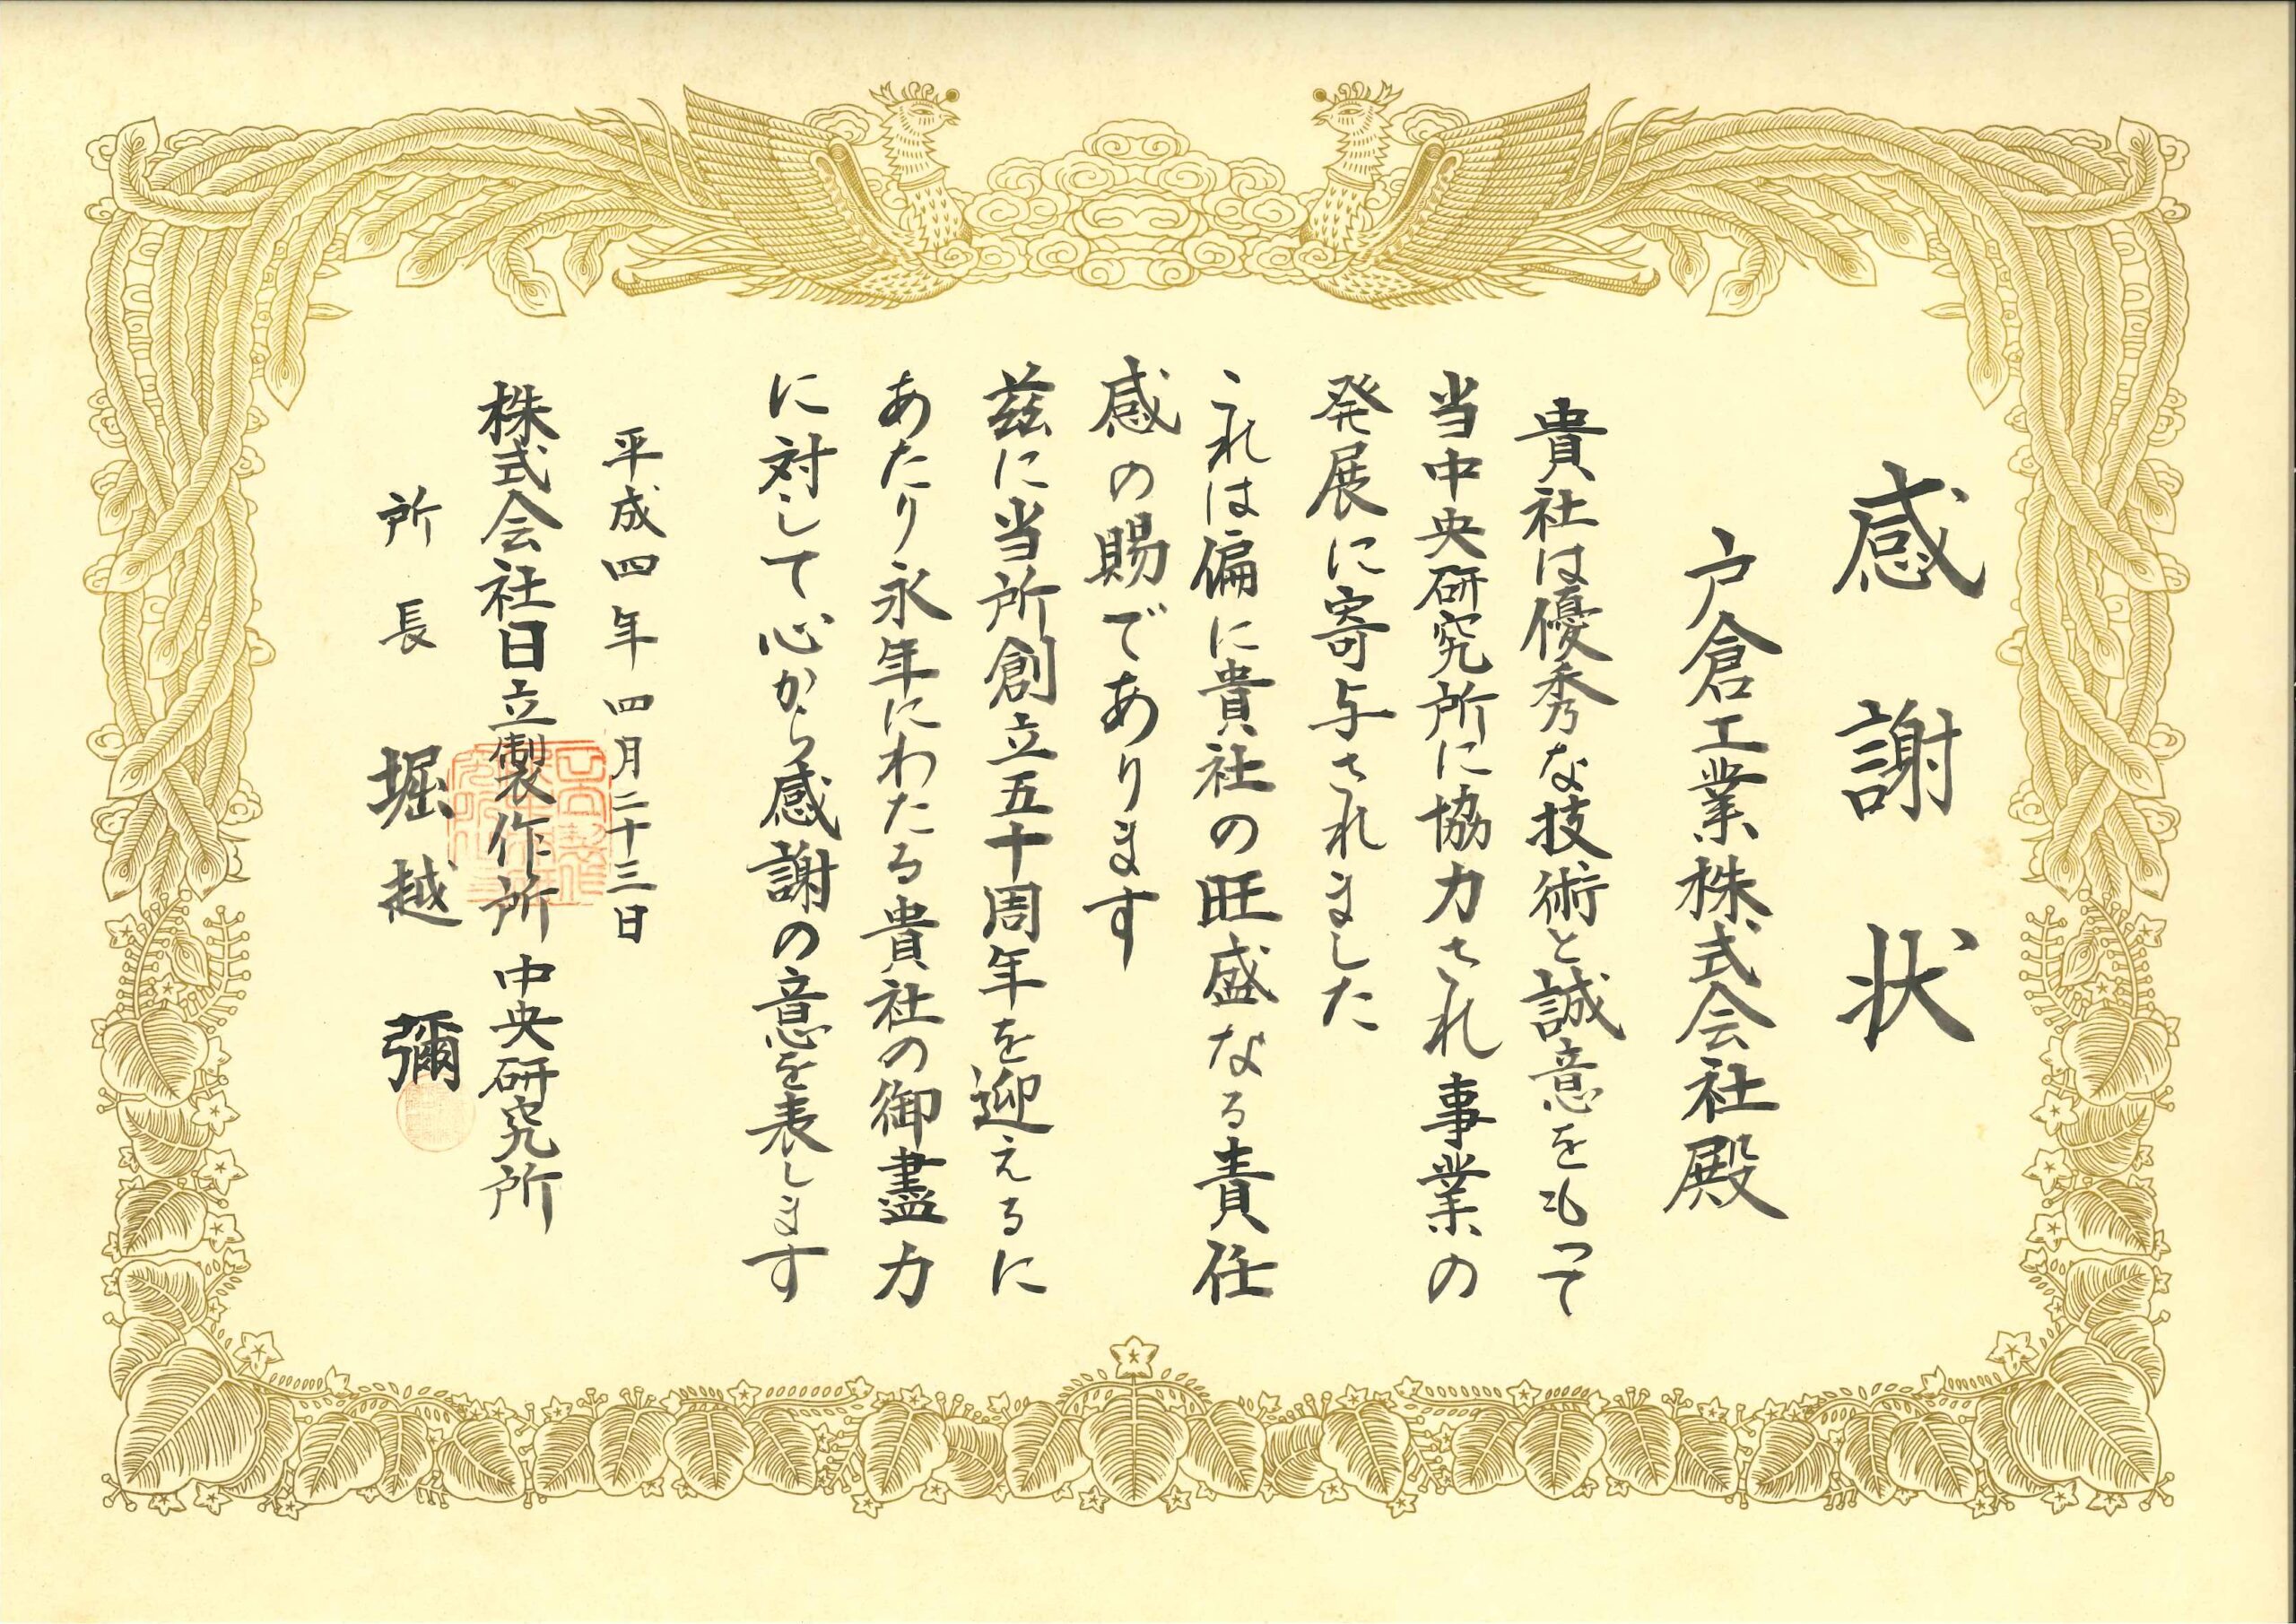 感謝状
戸倉工業株式会社殿
貴社は優秀な技術と誠意をもって
当中央研究所に協力され事業の
発展に寄与されました
これは偏に貴社の旺盛なる責任
感の賜であります
茲に当所創立五十周年を迎えるに
あたり永年にわたる貴社の御盡力
に対して心から感謝の意を表します
平成四年四月二十三日
株式会社日立製作所中央研究所
所長 堀越彌